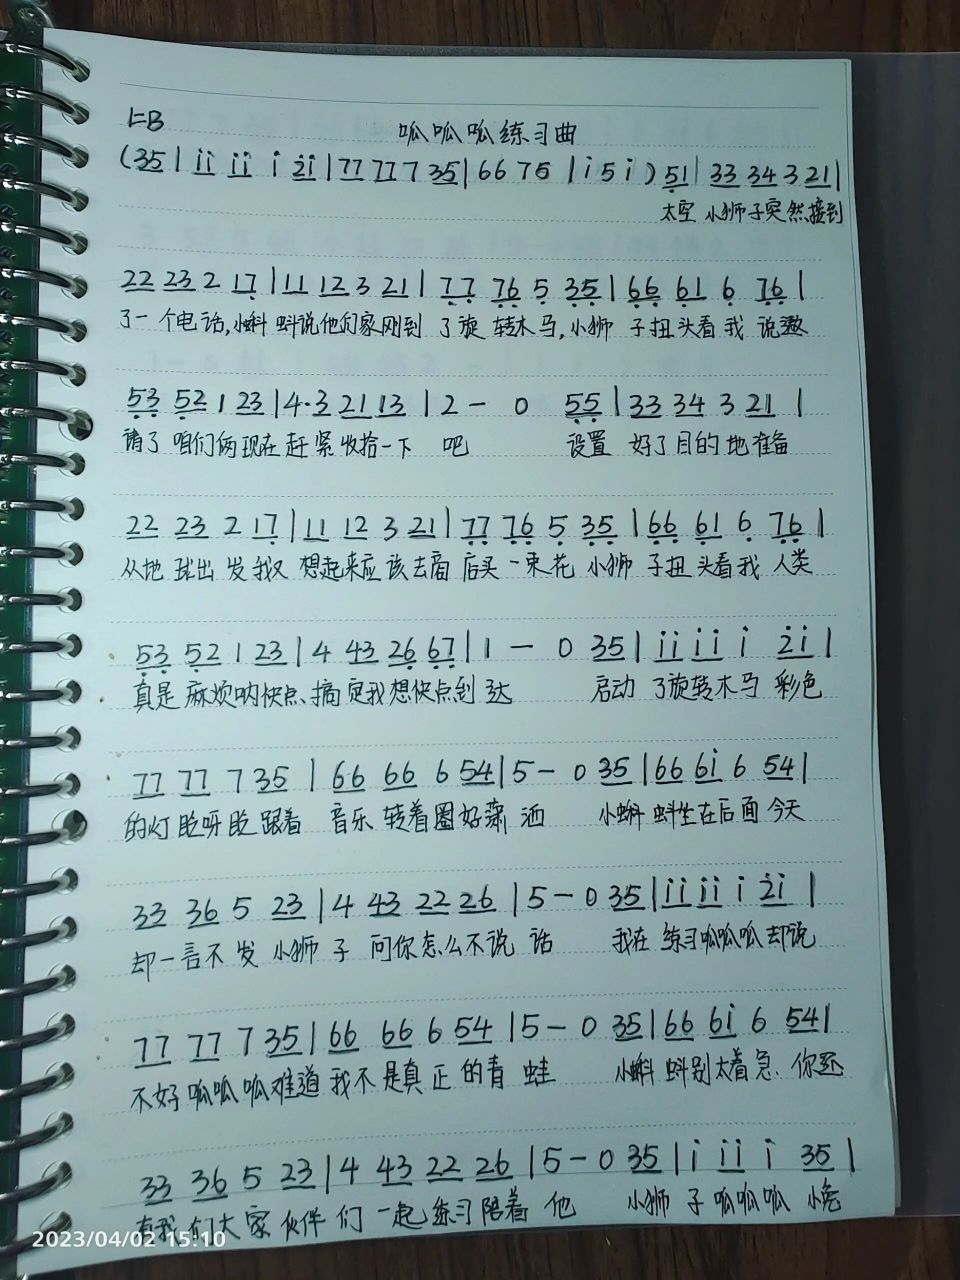 1=B
呱呱呱练习曲
(35 | i̇i̇ i̇i̇ i̇ 2̇i̇ | 77 77 7 35 | 66 75 | i̇ 5 i̇ ) 51 | 33 34 3 21 |
太空 小狮子突然接到
22 23 2 17 | 11 12 3 21 | 77 76 5 35 | 66 61 6 76 |
了一个电话,小蝌蚪说他们家刚到 了旋转木马,小狮 子扭头看我 说邀
53 52 1 23 | 4·3 21 13 | 2 - 0 55 | 33 34 3 21 |
请了 咱们俩现在赶紧收拾一下 吧 设置 好了目的地准备
22 23 2 17 | 11 12 3 21 | 77 76 5 35 | 66 61 6 76 |
从地球出发我又 想起来应该去面 店买一束花 小狮 子扭头看我 人类
53 52 1 23 | 4 43 26 67 | 1 - 0 35 | i̇i̇ i̇i̇ i̇ 2̇i̇ |
真是麻烦呐快点、搞定我想快点到达 启动 了旋转木马 彩色
77 77 7 35 | 66 66 6 54 | 5 - 0 35 | 66 6i̇ 6 54 |
的灯眨呀眨跟着 音乐 转着圈好潇洒 小蝌蚪坐在后面 今天
33 36 5 23 | 4 43 22 26 | 5 - 0 35 | i̇i̇ i̇i̇ i̇ 2̇i̇ |
却一言不发 小狮 子 问你怎么不说 话 我在 练习呱呱呱却说
77 77 7 35 | 66 66 6 54 | 5 - 0 35 | 66 6i̇ 6 54 |
不好呱呱呱难道我不是真正的青蛙 小蝌蚪别太着急、你还
33 36 5 23 | 4 43 22 26 | 5 - 0 35 | i̇ i̇i̇ i̇ 35 |
有我们大家伙伴们一起练习陪着他 小狮 子呱呱呱 小兔
2023/04/02 15:10